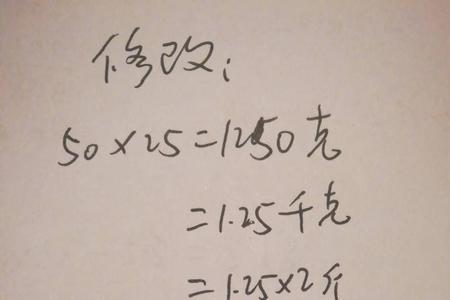 修改:
50×25=1250克
=1.25千克
=1.25×2斤